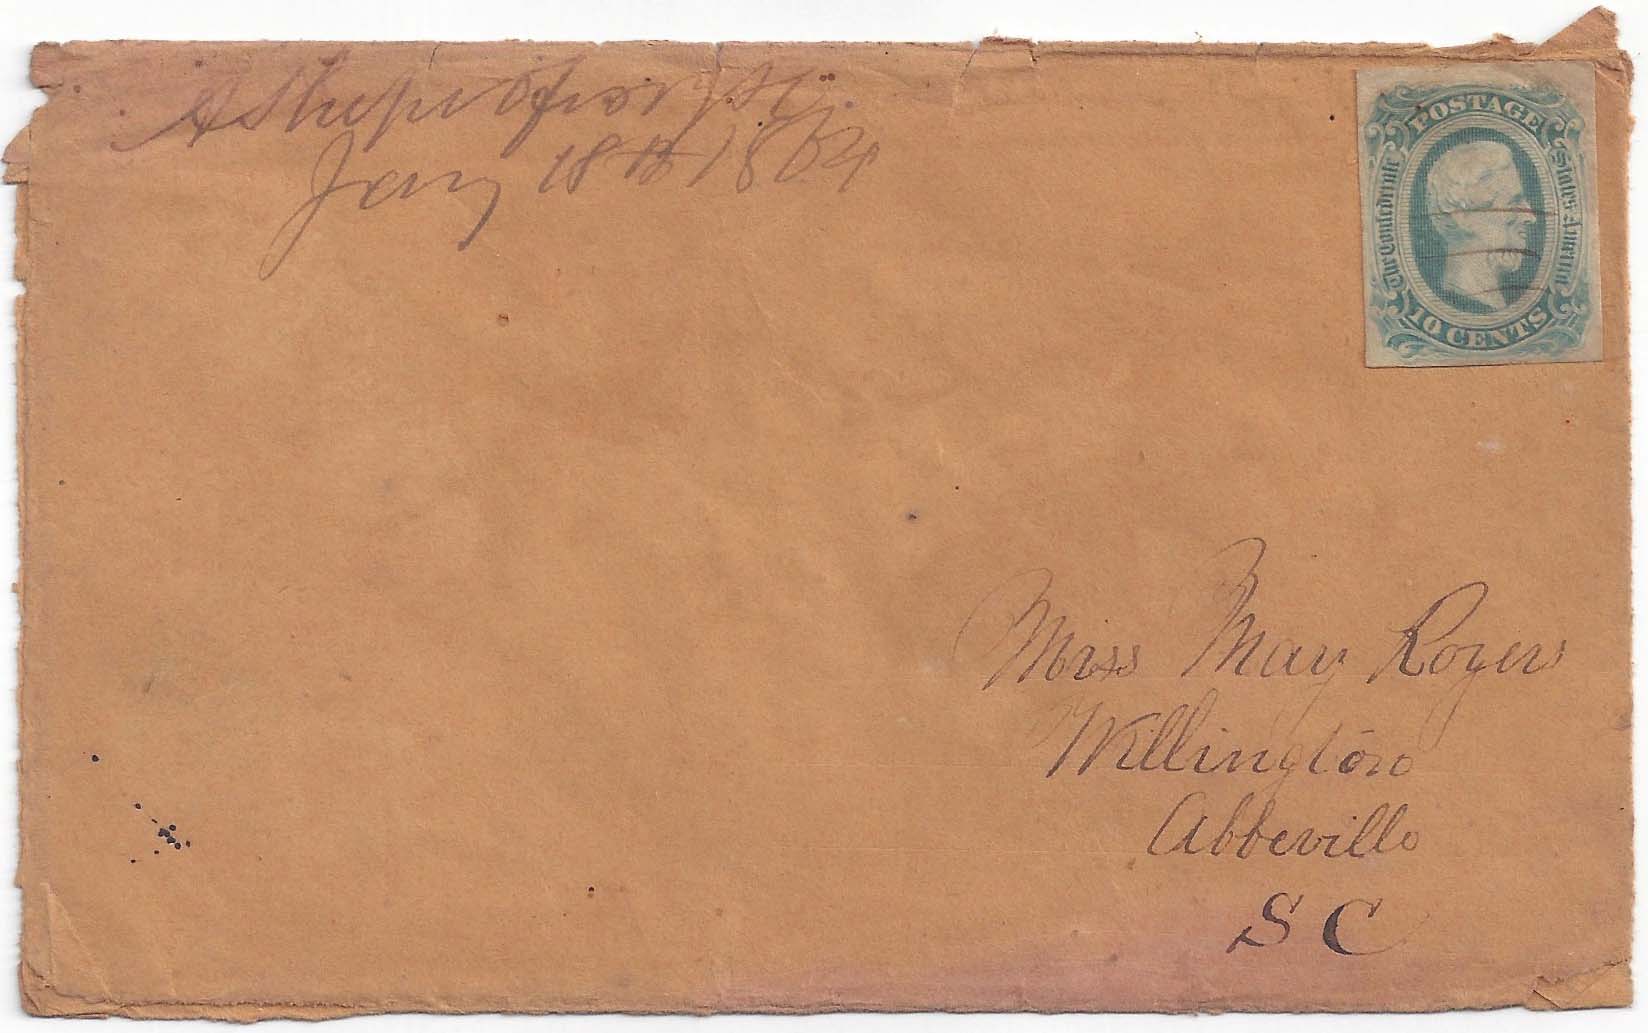 Jany 18th 1864
POSTAGE
The Confederate
States America
10 CENTS
Miss May Rogers
Willington
Abbeville
S C